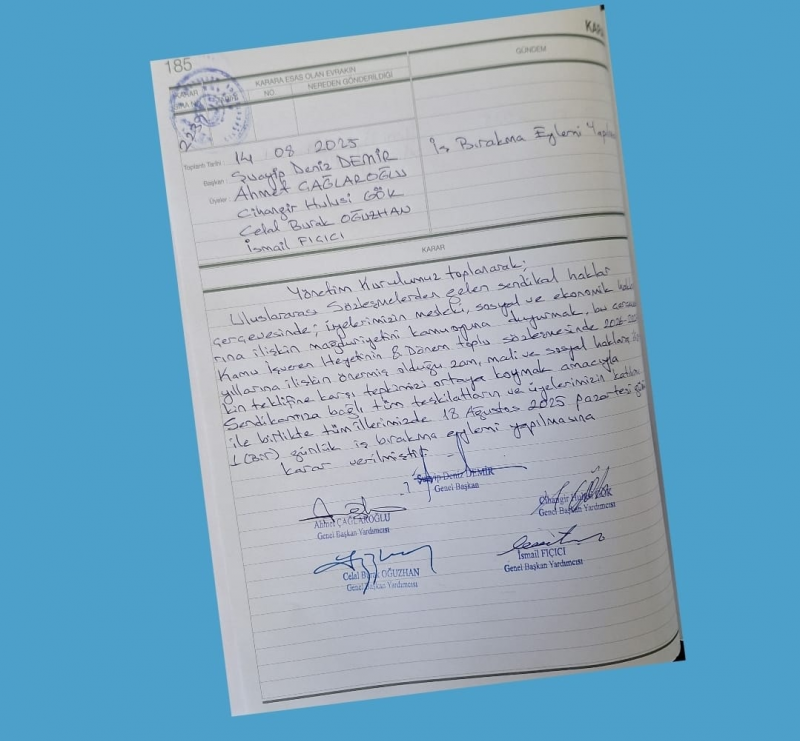 185
KARA
KARAR
KARARA ESAS OLAN EVRAKIN
GÜNDEM
NO.
NEREDEN GÖNDERİLDİĞİ
Toplantı Tarihi
14 08 2025
Başkan
Şuayip Deniz DEMİR
İş Bırakma Eylemi
Üyeler
Ahmet ÇAĞLAROĞLU
Cihangir Hulusi GÖK
Celal Burak OĞUZHAN
İsmail FIÇICI
KARAR
Yönetim Kurulumuz toplanarak;
Uluslararası Sözleşmelerden gelen sendikal haklar
çerçevesinde; üyelerimizin mesleki, sosyal ve ekonomik
rına ilişkin mağduriyetini kamuoyuna duyurmak, bu
Kamu İşveren Heyetinin 8. Dönem toplu sözleşmesinde 2026-20
yıllarına ilişkin önermiş olduğu zam, mali ve sosyal haklara
kin teklifine karşı tepkimizi ortaya koymak amacıyla
Sendikamıza bağlı tüm teşkilatların ve üyelerimizin
ile birlikte tüm illerimizde 18 Ağustos 2025 pazartesi
1 (Bir) günlük iş bırakma eylemi yapılmasına
karar verilmiştir
Şuayip Deniz DEMİR
Genel Başkan
Ahmet ÇAĞLAROĞLU
Genel Başkan Yardımcısı
Cihangir Hulusi GÖK
Genel Başkan Yardımcısı
Celal Burak OĞUZHAN
Genel Başkan Yardımcısı
İsmail FIÇICI
Genel Başkan Yardımcısı